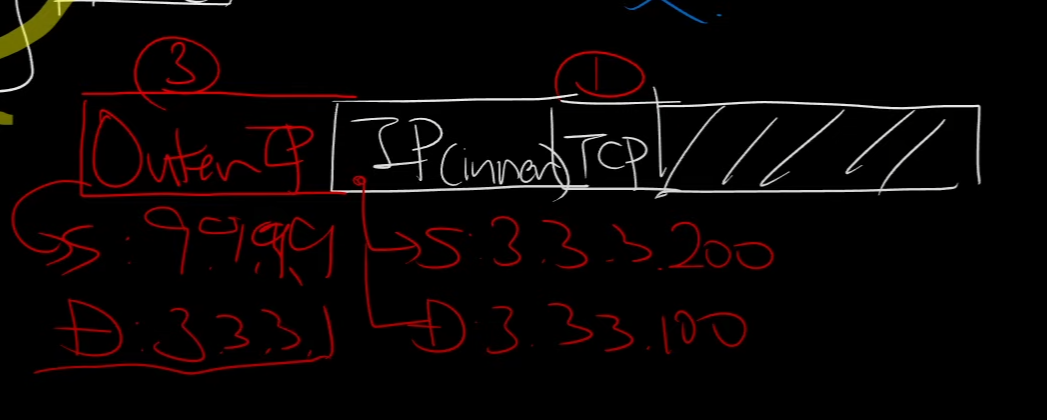 3 1
Outer IP IP(inner) TCP
S: 9.9.9.9 S: 3.3.3.200
D: 3.3.3.1 D: 3.3.3.100